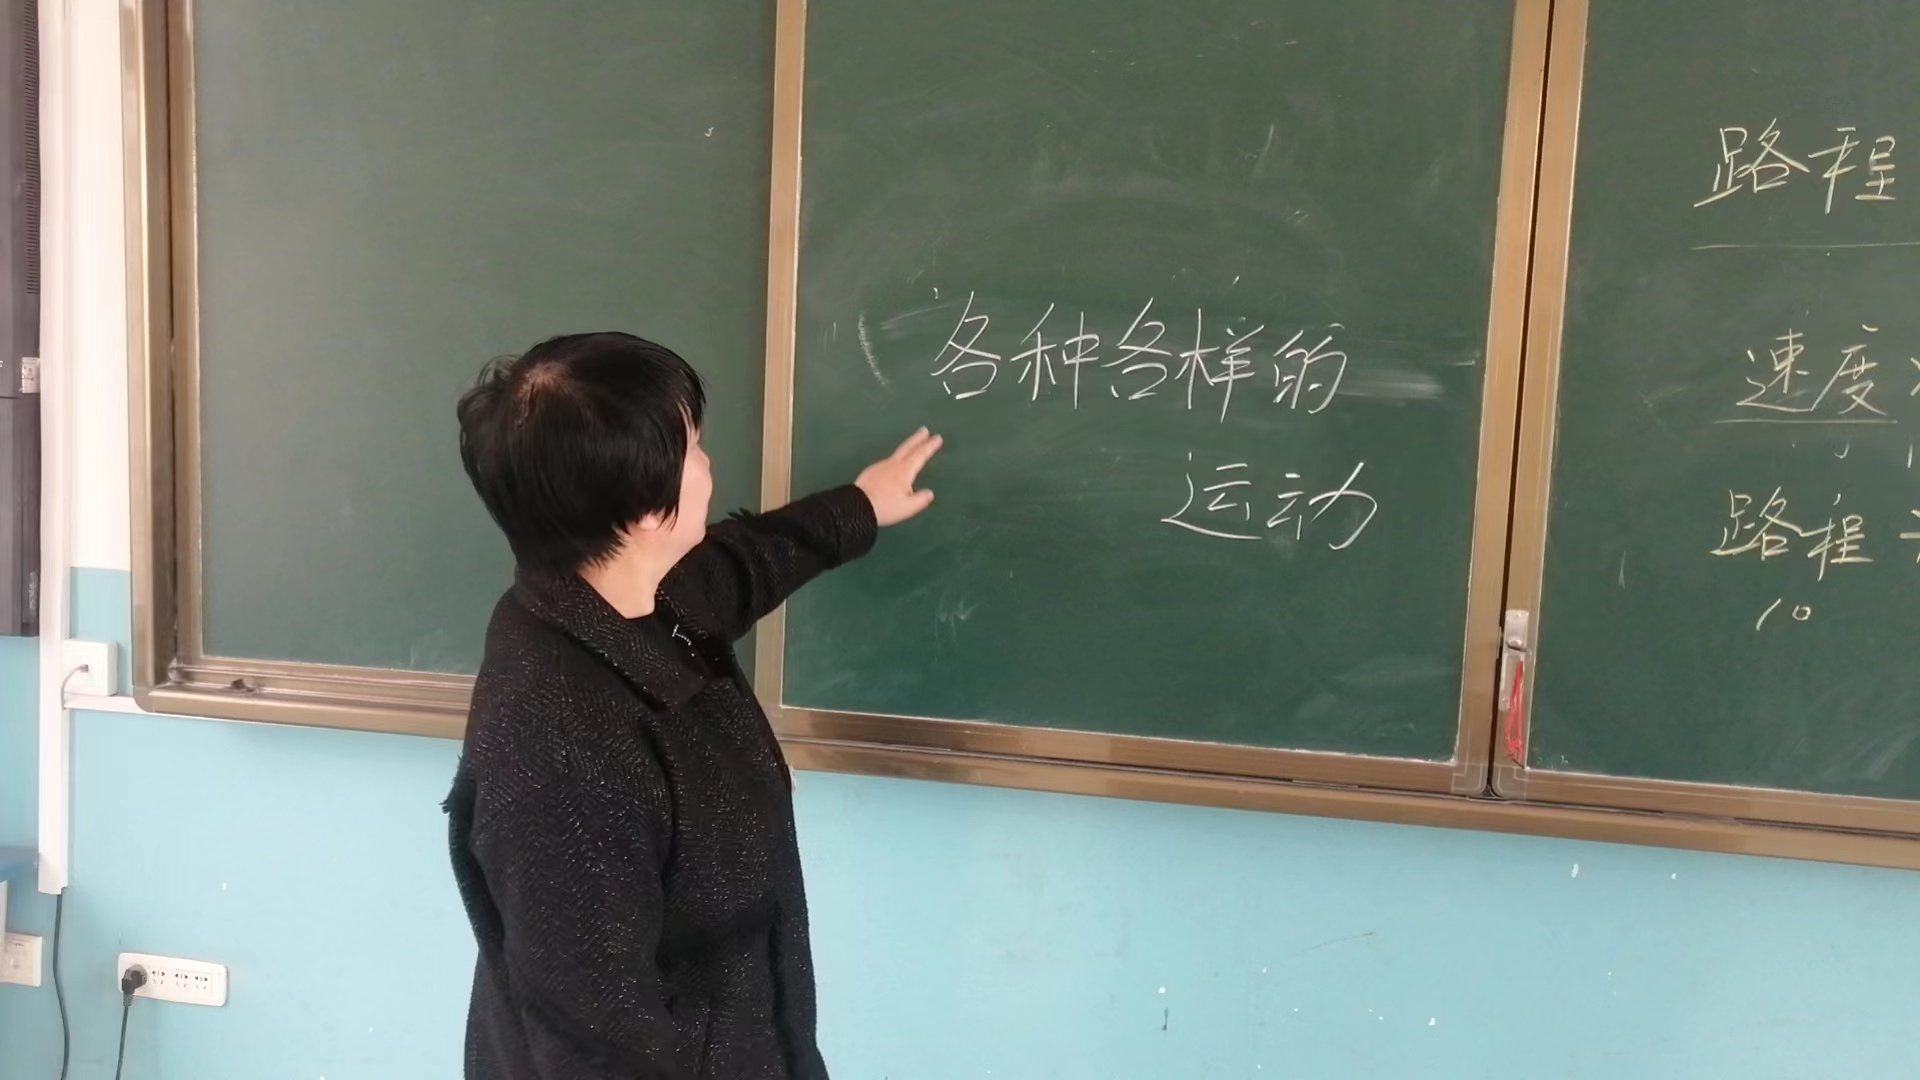 各种各样的
运动
路程
速度
路程
10